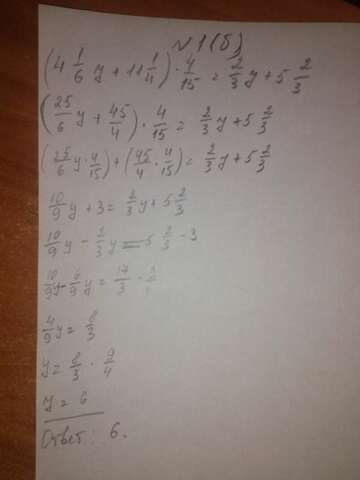 №1(б)
(4 1/6 y + 11 1/4) · 4/15 = 2/3 y + 5 2/3
(25/6 y + 45/4) · 4/15 = 2/3 y + 5 2/3
(25/6 y · 4/15) + (45/4 · 4/15) = 2/3 y + 5 2/3
10/9 y + 3 = 2/3 y + 5 2/3
10/9 y - 2/3 y = 5 2/3 - 3
10/9 y - 6/9 y = 17/3 -
4/9 y = 8/3
y = 8/3 · 9/4
y = 6
Ответ: 6.